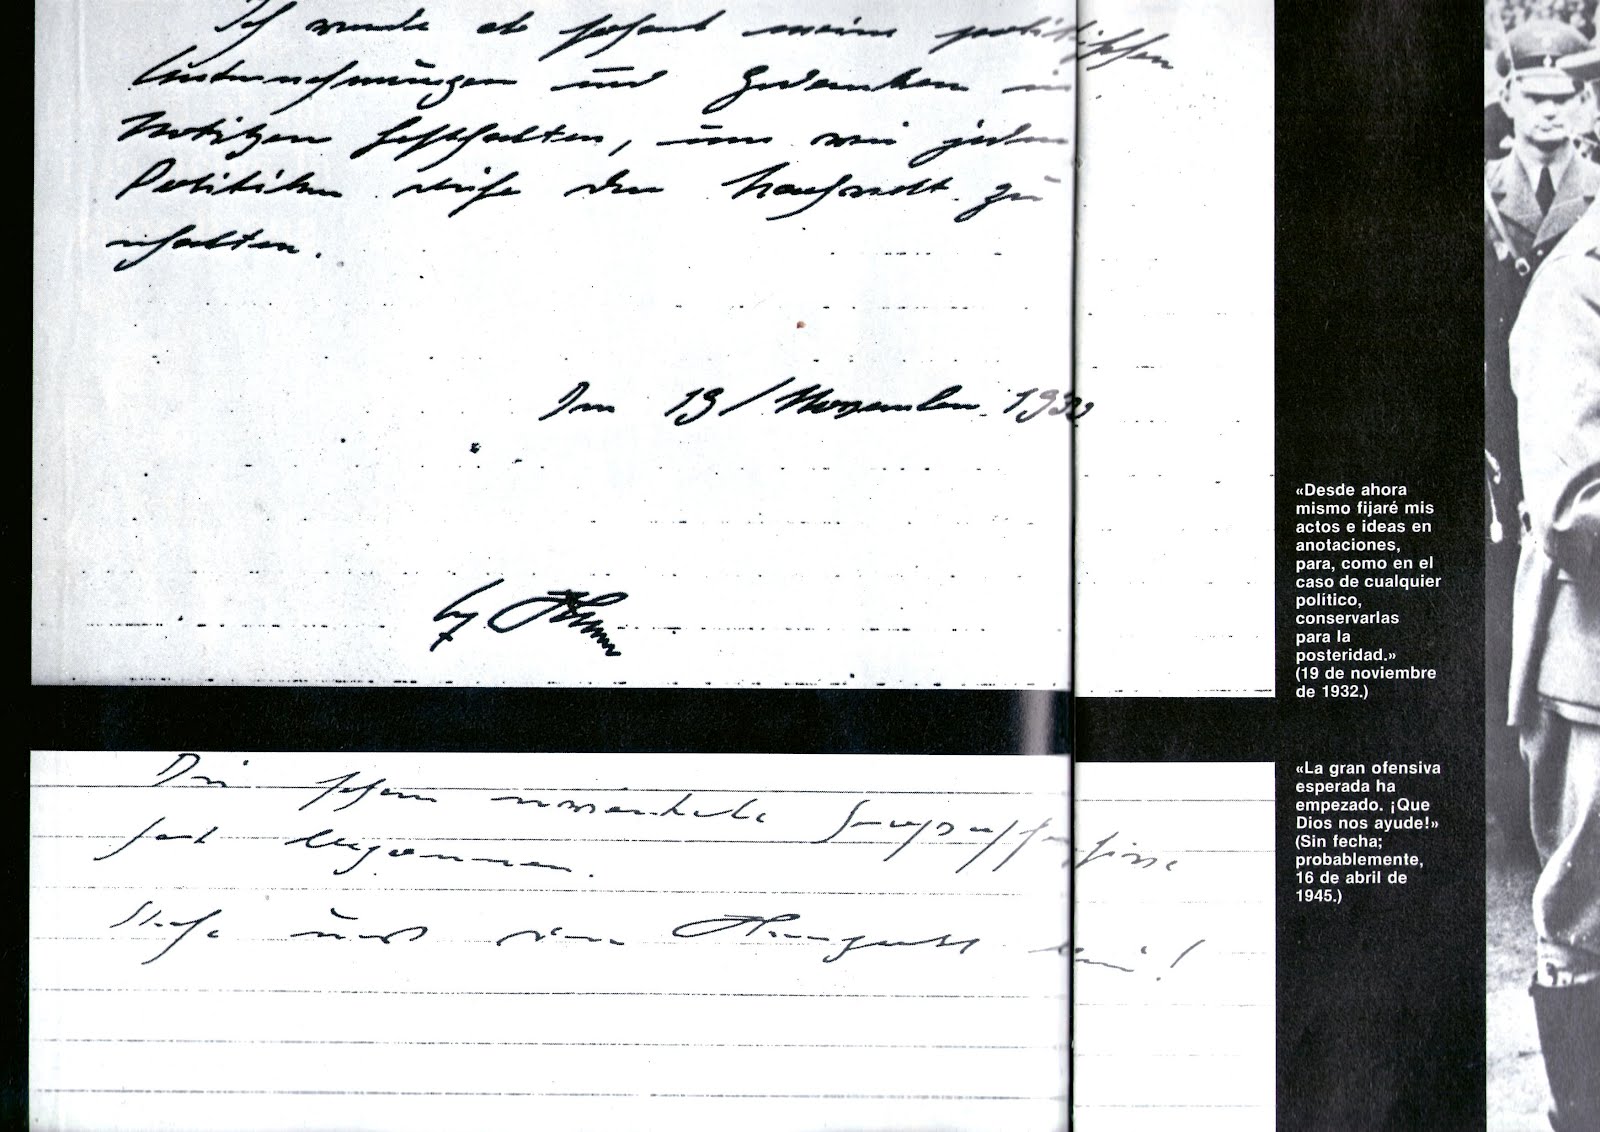 Ich werde ab sofort meine politischen
Unternehmungen und Gedanken in
Notizen festhalten, um wie jeder
Politiker der Nachwelt zu
erhalten.
19/November 1932
Die erwartete Großoffensive
hat begonnen.
Stehe uns der Herrgott bei!
«Desde ahora
mismo fijaré mis
actos e ideas en
anotaciones,
para, como en el
caso de cualquier
político,
conservarlas
para la
posteridad.»
(19 de noviembre
de 1932.)
«La gran ofensiva
esperada ha
empezado. ¡Que
Dios nos ayude!»
(Sin fecha;
probablemente,
16 de abril de
1945.)